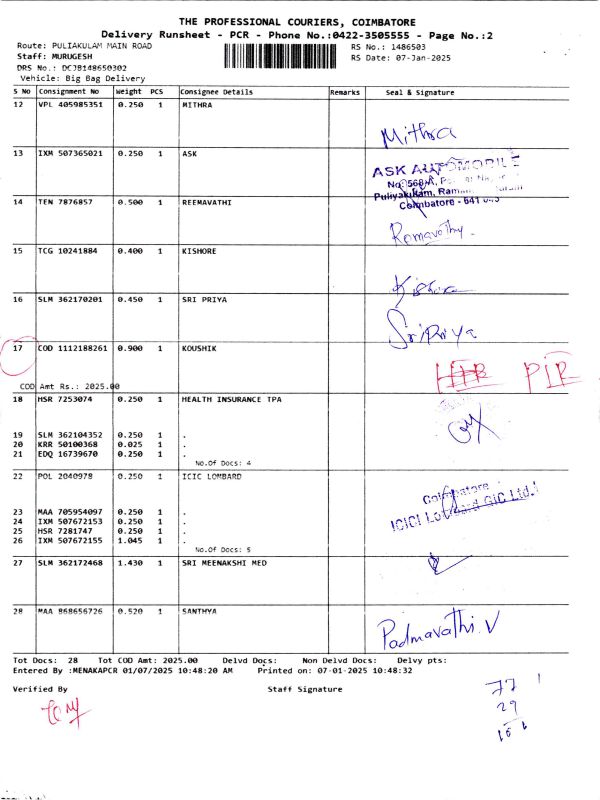 THE PROFESSIONAL COURIERS, COIMBATORE
Delivery Runsheet - PCR - Phone No.:0422-3505555 - Page No.:2
Route: PULIAKULAM MAIN ROAD RS No.: 1486503
Staff: MURUGESH RS Date: 07-Jan-2025
DRS No.: DCJB148650302
Vehicle: Big Bag Delivery
S No Consignment No Weight PCS Consignee Details Remarks Seal & Signature
12 VPL 405985351 0.250 1 MITHRA
Mithra
13 IXM 507365021 0.250 1 ASK
ASK AUTOMOBILE
No: 568/A,
Puliyakulam,
Coimbatore - 641 045
14 TEN 7876857 0.500 1 REEMAVATHI
Remavathy
15 TCG 10241884 0.400 1 KISHORE
Kishore
16 SLM 362170201 0.450 1 SRI PRIYA
Sri Priya
17 COD 1112188261 0.900 1 KOUSHIK
COD Amt Rs.: 2025.00
18 HSR 7253074 0.250 1 HEALTH INSURANCE TPA
19 SLM 362104352 0.250 1 .
20 KRR 50100368 0.025 1 .
21 EDQ 16739670 0.250 1 .
No.Of Docs: 4
22 POL 2040978 0.250 1 ICIC LOMBARD
Coimbatore
ICICI Lombard GIC Ltd.
23 MAA 705954097 0.250 1 .
24 IXM 507672153 0.250 1 .
25 HSR 7281747 0.250 1 .
26 IXM 507672155 1.045 1 .
No.Of Docs: 5
27 SLM 362172468 1.430 1 SRI MEENAKSHI MED
28 MAA 868656726 0.520 1 SANTHYA
Padmavathi. V
Tot Docs: 28 Tot COD Amt: 2025.00 Delvd Docs: Non Delvd Docs: Delvy pts:
Entered By :MENAKAPCR 01/07/2025 10:48:20 AM Printed on: 07-01-2025 10:48:32
Verified By Staff Signature
77
29